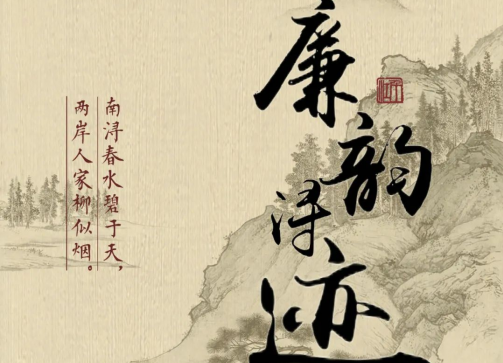 廉韵浔迹
南浔春水碧于天，
两岸人家柳似烟。